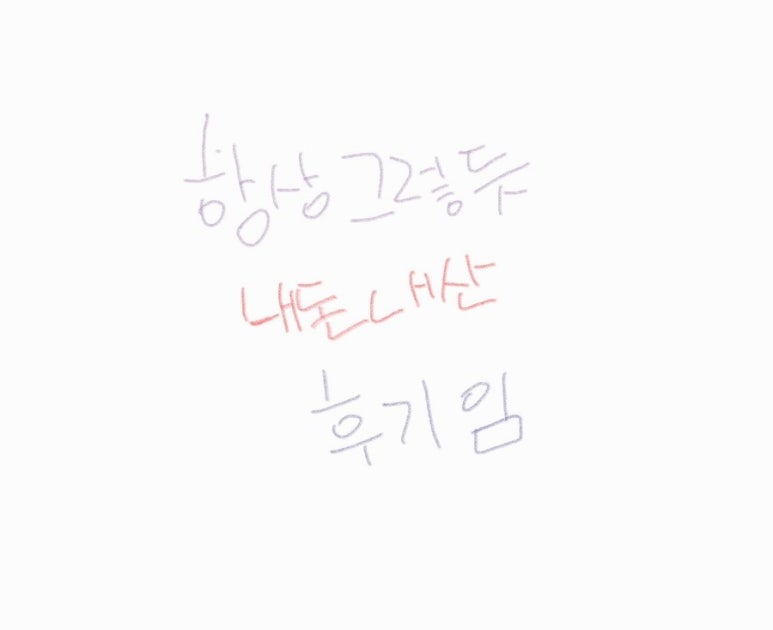 항상 그렇듯
내돈내산
후기임